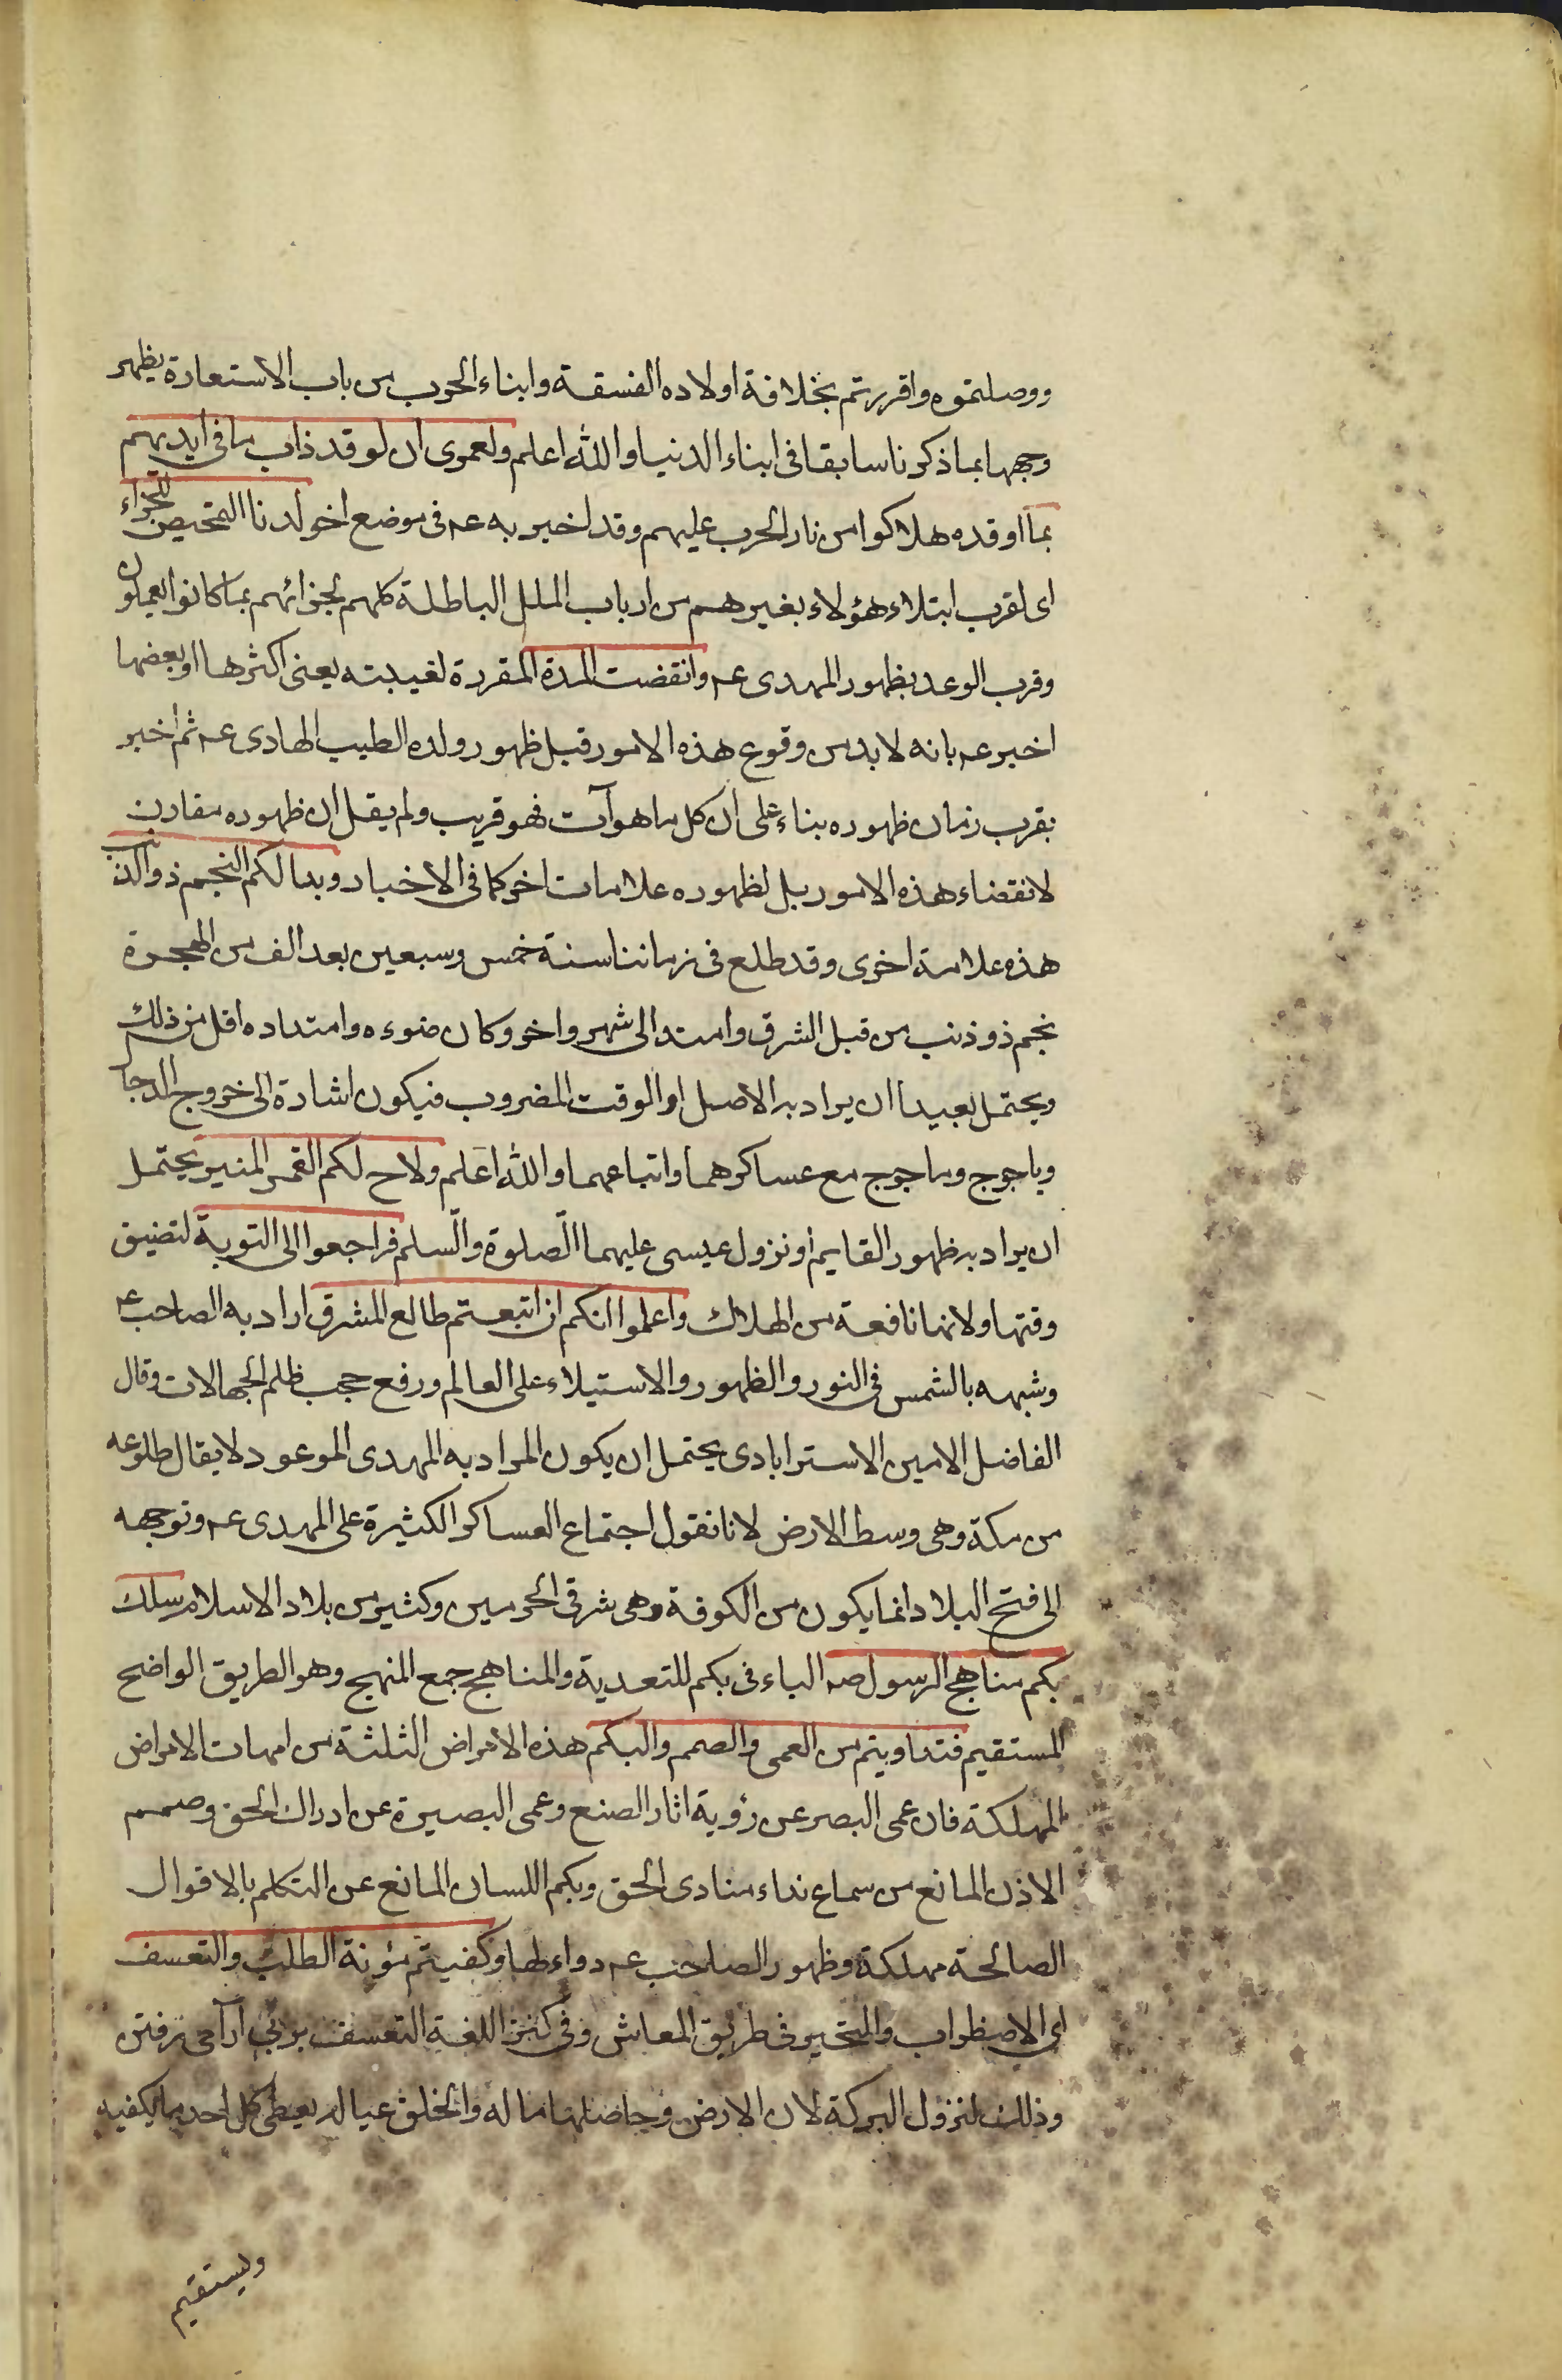 ووصلتموه واقررتم بخلافة اولاده الفسقة وابناء الحرب من باب الاستعارة يظهر
وجهها بما ذكرنا سابقا فى ابناء الدنيا والله اعلم ولعمرى ان لو قد ذاب ما فى ايديهم
بما اوقده هلاكوا من نار الحرب عليهم وقد اخبر به عه فى موضع اخر لدنا التمحيص للجزاء
اى لقرب ابتلاء هؤلاء بغيرهم من ارباب الملل الباطلة كلهم لجزائهم بما كانوا يعملون
وقرب الوعد بظهور المهدى عه وانقضت المدة المقررة لغيبته يعنى اكثرها او بعضها
اخبر عه بانه لا بد من وقوع هذه الامور قبل ظهور ولده الطيب الهادى عه ثم اخبر
بقرب زمان ظهوره بناء على ان كل ما هو آت فهو قريب ولم يقل ان ظهوره مقارن
لانقضاء هذه الامور بل لظهوره علامات اخر كما فى الاخبار وبدا لكم النجم ذو الذنب
هذه علامة اخرى وقد طلع فى زماننا سنة خمس وسبعين بعد الف من الهجرة
نجم ذو ذنب من قبل الشرق وامتد الى شهر واخر وكان ضوءه وامتداده اقل من ذلك
ويحتمل بعيدا ان يراد به الاصل او الوقت المضروب فيكون اشارة الى خروج الدجا
وياجوج وماجوج مع عساكرهما واتباعهما والله اعلم ولاح لكم القمر المنير يحتمل
ان يراد به ظهور القايم او نزول عيسى عليهما الصلوة والسلم فراجعوا الى التوبة لتضيق
وقتها ولانها نافعة من الهلاك واعلموا انكم ان اتبعتم طالع المشرق اراد به الصاحب ع
وشبهه بالشمس فى النور والظهور والاستيلاء على العالم ورفع حجب ظلم الجهالات وقال
الفاضل الامين الاسترابادى يحتمل ان يكون المراد به المهدى الموعود لا يقال طلوعه
من مكة وهى وسط الارض لانا نقول اجتماع العساكر الكثيرة على المهدى عه وتوجهه
الى فتح البلاد انما يكون من الكوفة وهى شرقى الحرمين وكثير من بلاد الاسلام سلك
بكم مناهج الرسول صه الباء فى بكم للتعدية والمناهج جمع المنهج وهو الطريق الواضح
المستقيم فتداويتم من العمى والصمم والبكم هذه الامراض الثلثة من امهات الامراض
المهلكة فان عمى البصر عن رؤية اثار الصنع وعمى البصيرة عن ادراك الحق وصمم
الاذن المانع من سماع نداء منادى الحق وبكم اللسان المانع عن التكلم بالاقوال
الصالحة مهلكة وظهور الصاحب عه دواء لها وكفيتم مؤنة الطلب والتعسف
اى الاضطراب والتحير فى طريق المعاش وفى كنز اللغة التعسف بر بى آرامى رفتن
وذلك لنزول البركة لان الارض وحاصلها ماله والخلق عياله يعطى كل احد ما يكفيه
وليستقيم